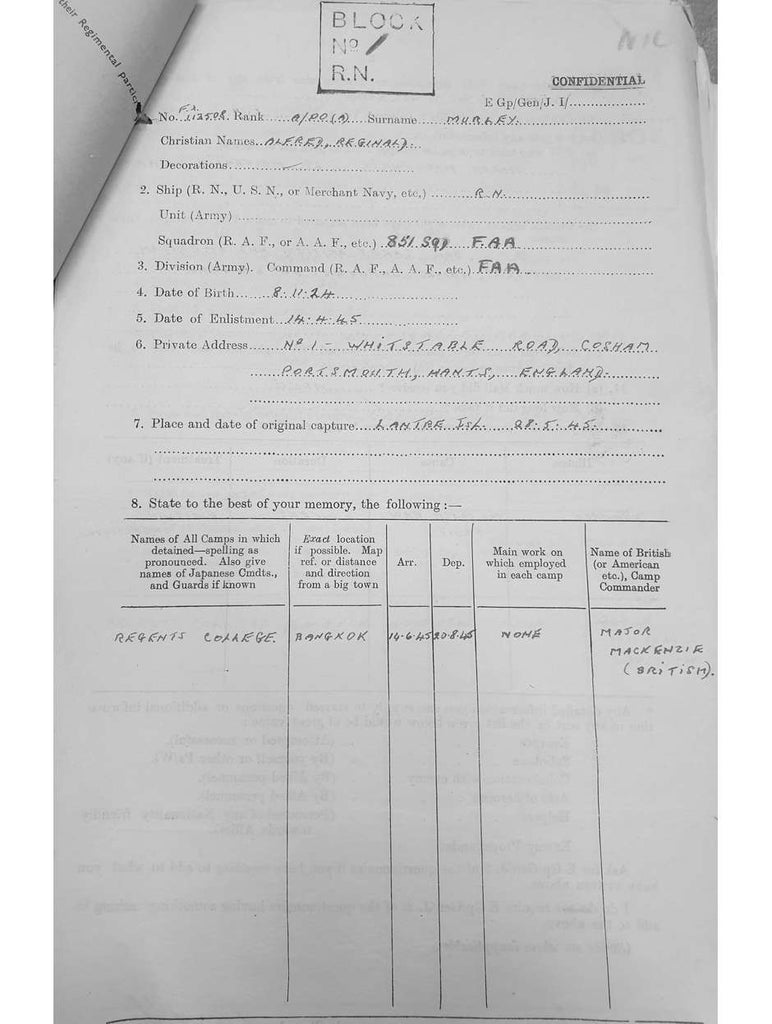 their Regimental Partic
BLOCK
No 1
R.N.
NIL
CONFIDENTIAL
E Gp/Gen/J. I/
No. Rank A/PO(A) Surname MURLEY
Christian Names ALFRED, REGINALD.
Decorations
2. Ship (R. N., U. S. N., or Merchant Navy, etc.) R.N.
Unit (Army)
Squadron (R. A. F., or A. A. F., etc.) 851 SQD FAA
3. Division (Army). Command (R. A. F., A. A. F., etc.) FAA
4. Date of Birth 8.11.24
5. Date of Enlistment 14.4.45
6. Private Address No 1 - WHITSTABLE ROAD, COSHAM
PORTSMOUTH, HANTS, ENGLAND.
7. Place and date of original capture LANTRE ISL. 28.5.45.
8. State to the best of your memory, the following :—
Names of All Camps in which detained—spelling as pronounced. Also give names of Japanese Cmdts., and Guards if known
Exact location if possible. Map ref. or distance and direction from a big town
Arr.
Dep.
Main work on which employed in each camp
Name of British (or American etc.), Camp Commander
REGENTS COLLEGE. BANGKOK 14-6-45 20.8.45 NONE MAJOR
MACKENZIE
(BRITISH).